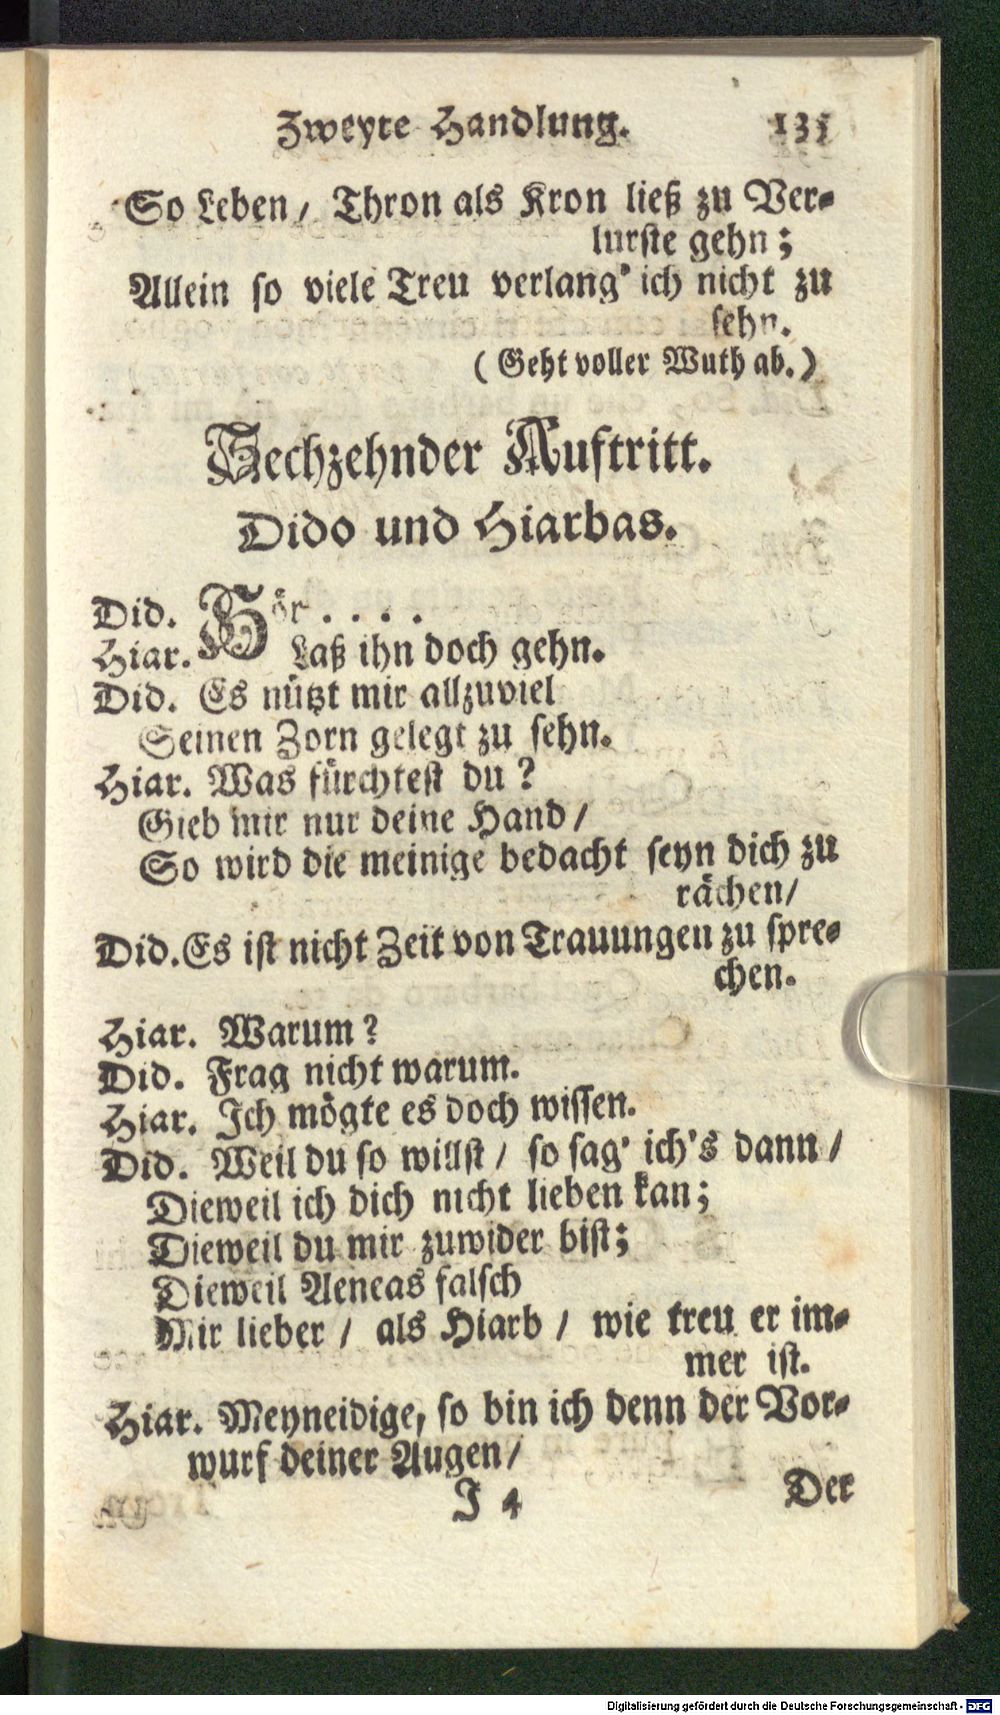 Zweyte Handlung. 135
So Leben / Thron als Kron ließ zu Ver-
lurste gehn;
Allein so viele Treu verlang' ich nicht zu
sehn.
(Geht voller Wuth ab.)
Sechzehnder Auftritt.
Dido und Hiarbas.
Did. Hör . . . .
Hiar. Laß ihn doch gehn.
Did. Es nützt mir allzuviel
Seinen Zorn gelegt zu sehn.
Hiar. Was fürchtest du?
Gieb mir nur deine Hand /
So wird die meinige bedacht seyn dich zu
rächen /
Did. Es ist nicht Zeit von Trauungen zu spre-
chen.
Hiar. Warum?
Did. Frag nicht warum.
Hiar. Ich mögte es doch wissen.
Did. Weil du so willst / so sag' ich's dann /
Dieweil ich dich nicht lieben kan;
Dieweil du mir zuwider bist;
Dieweil Aeneas falsch
Mir lieber / als Hiarb / wie treu er im-
mer ist.
Hiar. Meyneidige, so bin ich denn der Vor-
wurf deiner Augen /
J 4 Der
Digitalisierung gefördert durch die Deutsche Forschungsgemeinschaft - DFG